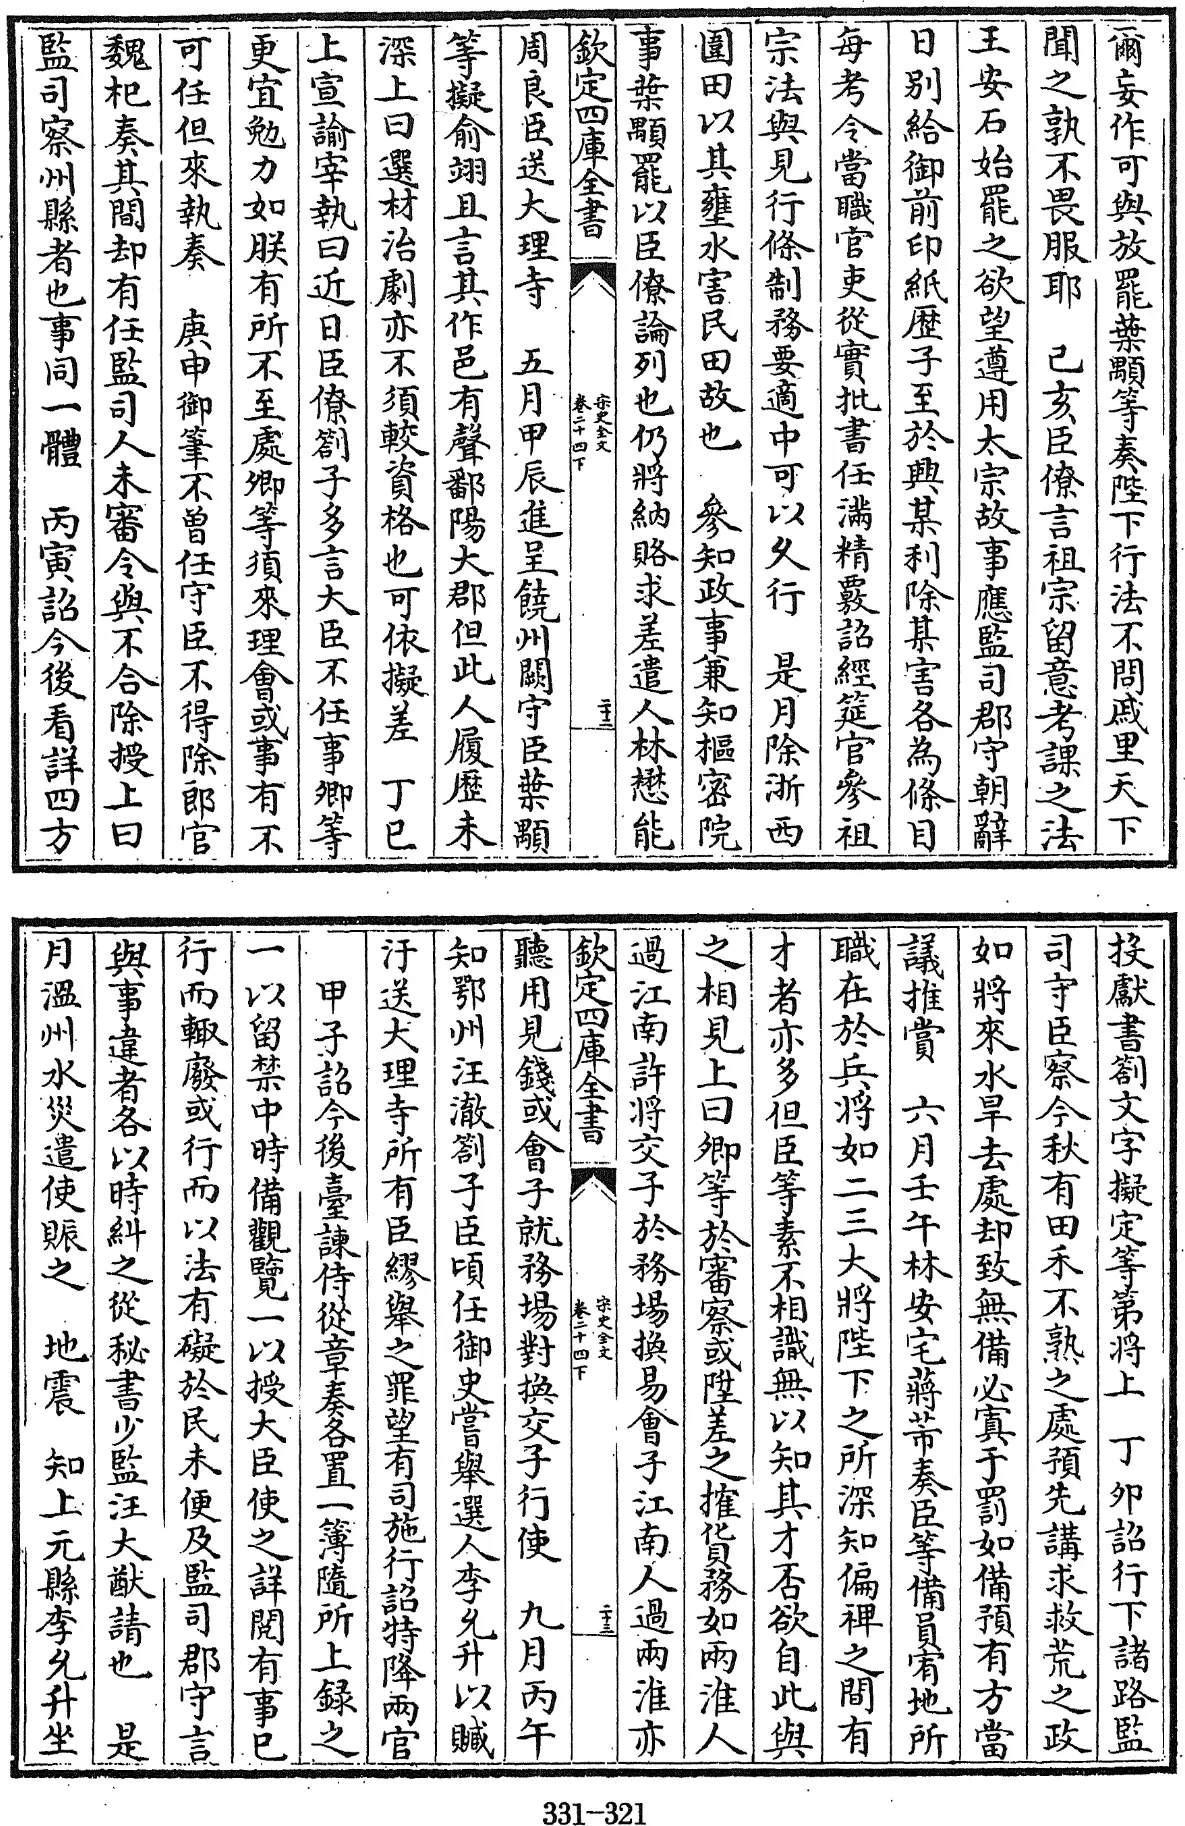 爾妄作可與放罷葉顒等奏陛下行法不問戚里天下
聞之孰不畏服耶　己亥臣僚言祖宗留意考課之法
王安石始罷之欲望遵用太宗故事應監司郡守朝辭
日別給御前印紙歷子至於興某利除某害各為條目
每考令當職官吏從實批書任滿精覈詔經筵官參祖
宗法與見行條制務要適中可以久行　是月除浙西
圍田以其壅水害民田故也　參知政事兼知樞密院
事葉顒罷以臣僚論列也仍將納賂求差遣人林懋能
欽定四庫全書　宋史全文卷二十四下　二十二
周良臣送大理寺　五月甲辰進呈饒州闕守臣葉顒
等擬俞翊且言其作邑有聲鄱陽大郡但此人履歷未
深上曰選材治劇亦不須較資格也可依擬差　丁巳
上宣諭宰執曰近日臣僚劄子多言大臣不任事卿等
更宜勉力如朕有所不至處卿等須來理會或事有不
可任但來執奏　庚申御筆不曾任守臣不得除郎官
魏杞奏其間却有任監司人未審令與不合除授上曰
監司察州縣者也事同一體　丙寅詔今後看詳四方
投獻書劄文字擬定等第將上　丁卯詔行下諸路監
司守臣察今秋有田禾不熟之處預先講求救荒之政
如將來水旱去處却致無備必寘于罰如備預有方當
議推賞　六月壬午林安宅蔣芾奏臣等備員宥地所
職在於兵將如二三大將陛下之所深知偏裨之間有
才者亦多但臣等素不相識無以知其才否欲自此與
之相見上曰卿等於審察或陞差之搉貨務如兩淮人
過江南許將交子於務場換易會子江南人過兩淮亦
欽定四庫全書　宋史全文卷二十四下　二十三
聽用見錢或會子就務場對換交子行使　九月丙午
知鄂州汪澈劄子臣頃任御史嘗舉選人李允升以贓
汙送大理寺所有臣繆舉之罪望有司施行詔特降兩官
甲子詔今後臺諫侍從章奏各置一簿隨所上録之
一以留禁中時備觀覽一以授大臣使之詳閱有事已
行而輙廢或行而以法有礙於民未便及監司郡守言
與事違者各以時糾之從秘書少監汪大猷請也　是
月溫州水災遣使賑之　地震　知上元縣李允升坐
331-321